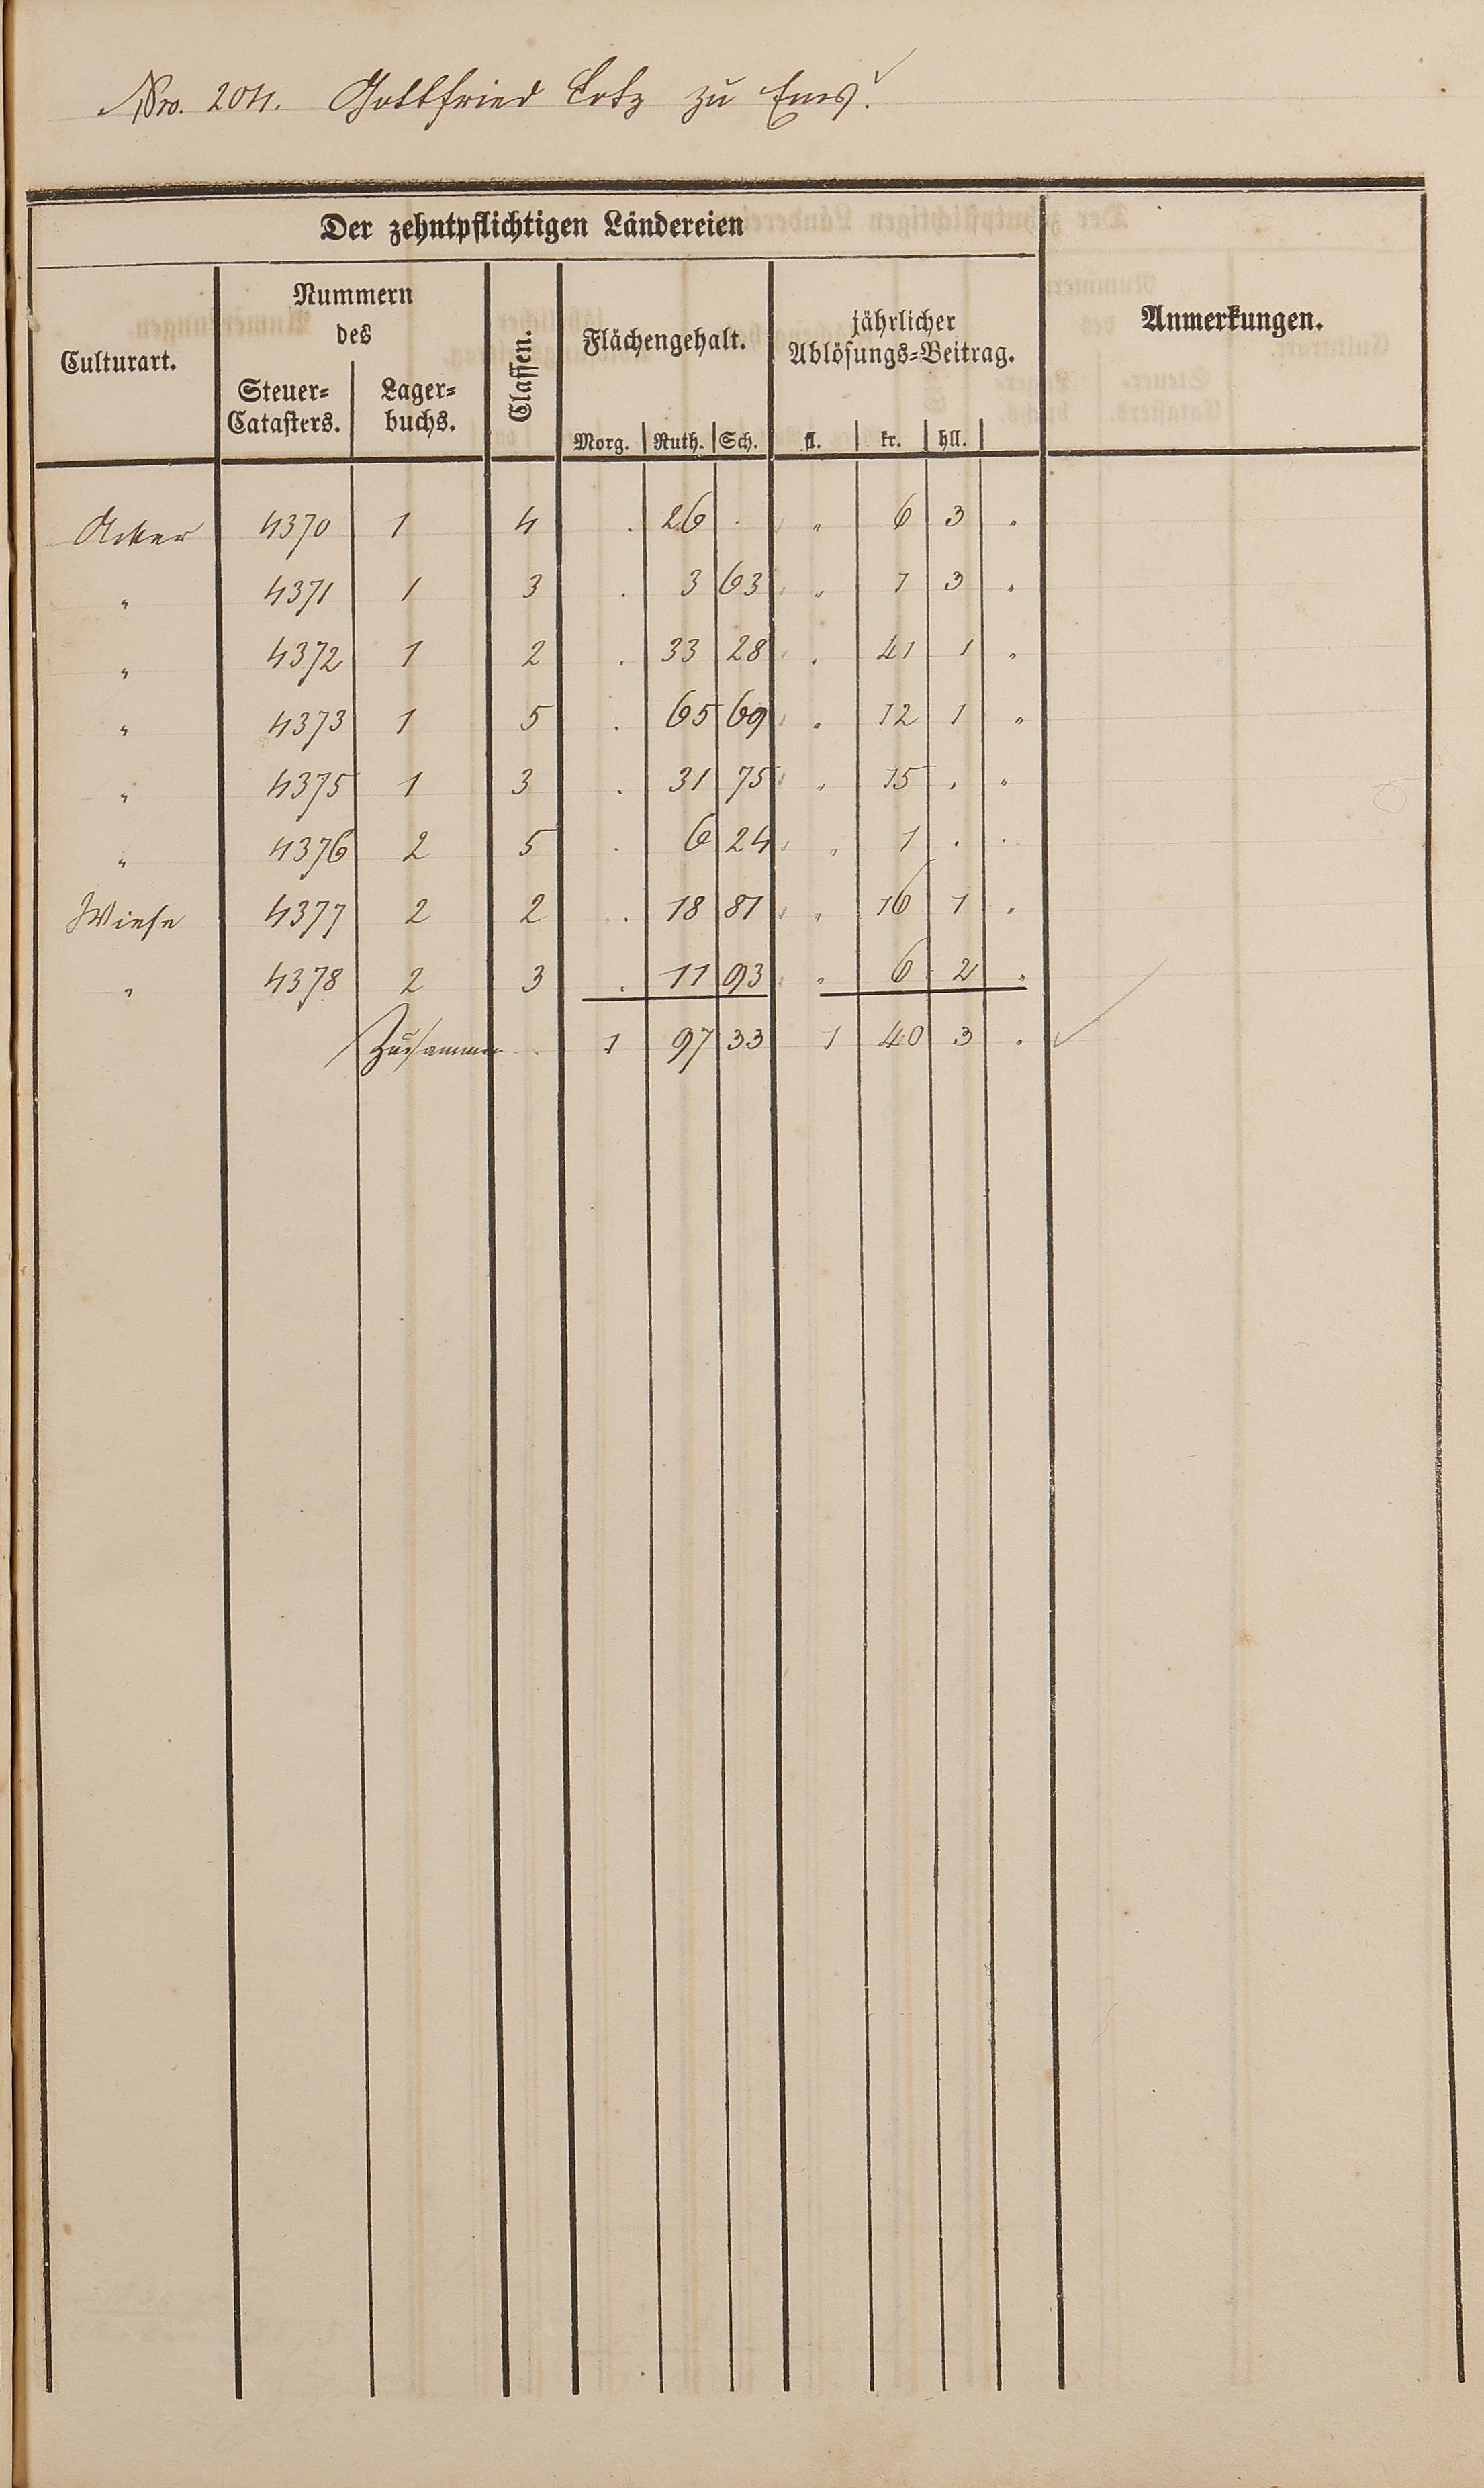 Nro. 204. Gottfried Lotz zu Ems.
Der zehntpflichtigen Ländereien
Culturart. Nummern des Steuer=Catasters. Lager=buchs. Classen. Flächengehalt. Morg. Ruth. Sch. jährlicher Ablösungs=Beitrag. fl. kr. hll. Anmerkungen.
Acker 4370 1 4 . 26 . „ 6 3 „
„ 4371 1 3 . 3 63 „ 1 3 „
„ 4372 1 2 . 33 28 „ 41 1 „
„ 4373 1 5 . 65 69 „ 12 1 „
„ 4375 1 3 . 31 75 „ 15 . „
„ 4376 2 5 . 6 24 „ 1 . .
Wiese 4377 2 2 . 18 81 „ 16 1 „
„ 4378 2 3 . 11 93 „ 6 2 „
Zusammen . . 1 97 33 1 40 3 „